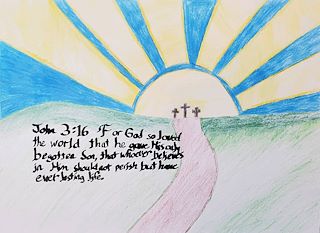 John 3:16 "For God so loved
the world that he gave His only
begotten Son, that whoever believes
in Him should not perish but have
everlasting life.